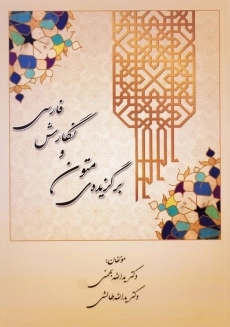 برگزیده‌ی متون
و
نگارش
فارسی
مؤلفان:
دکتر یدالله بهمنی
دکتر یدالله طالشی